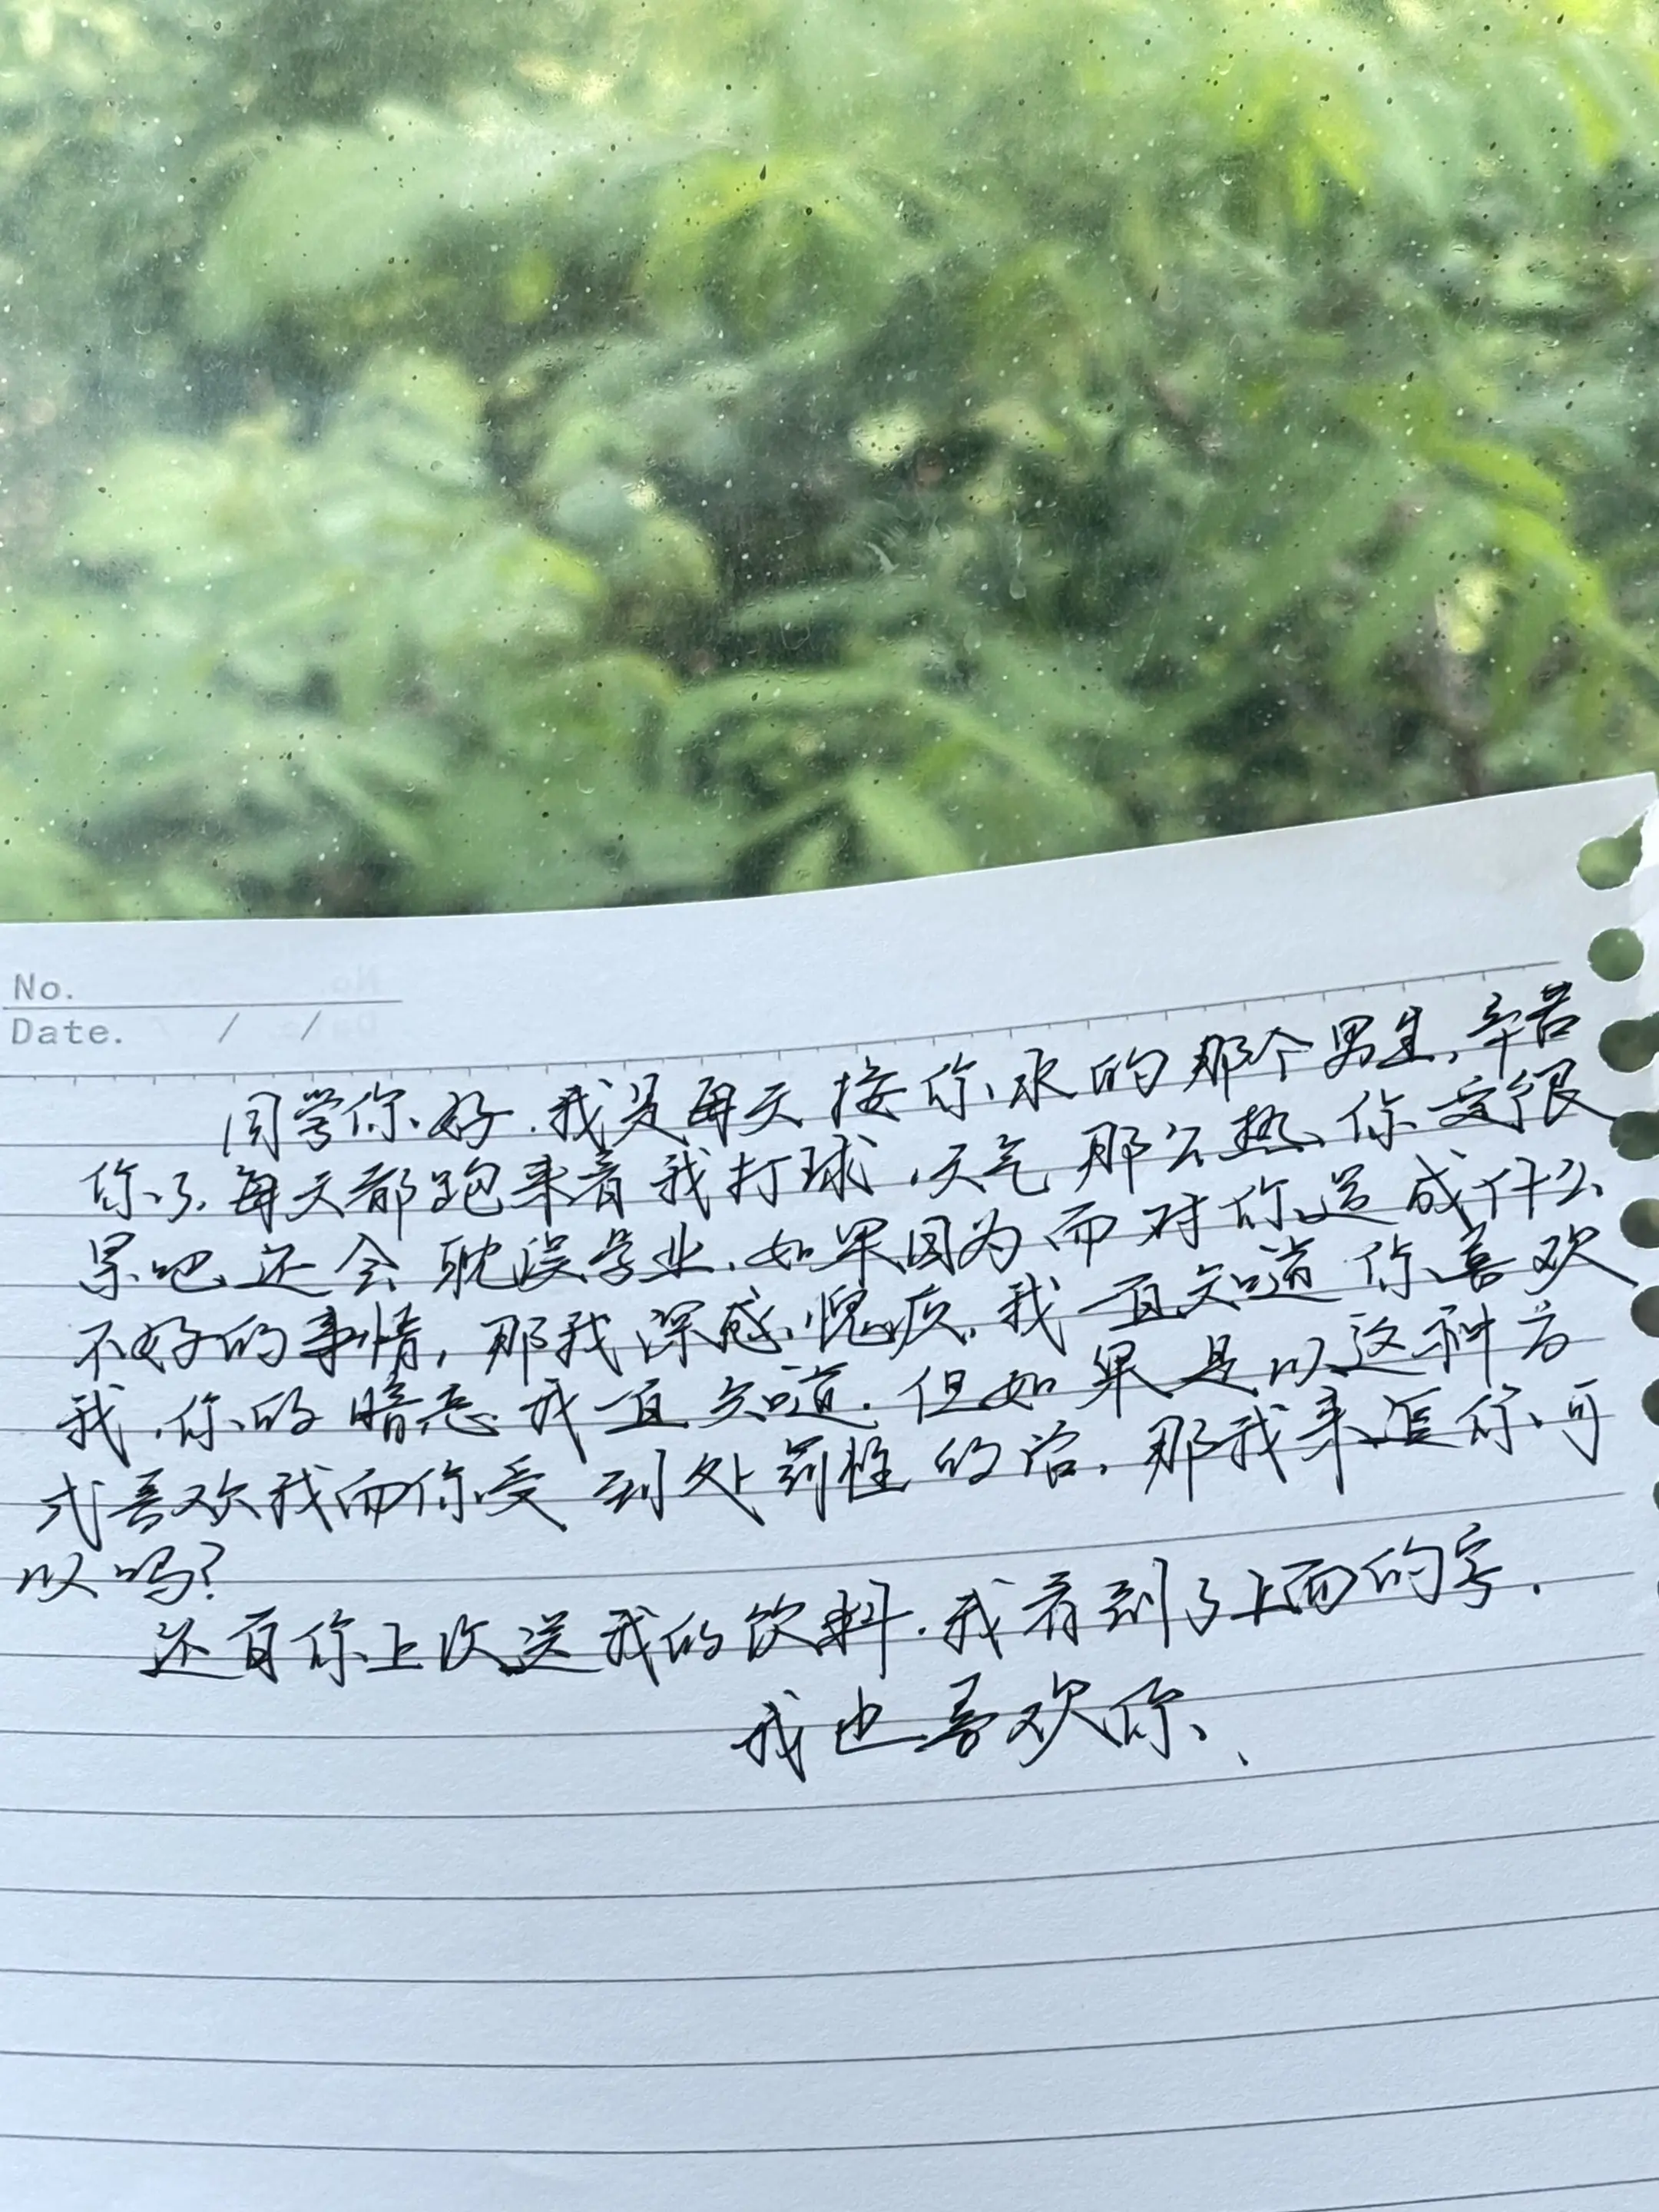 No.
Date. / /
同学你好.我是每天接你水的那个男生,辛苦
你了,每天都跑来看我打球,天气那么热,你一定很
累吧,还会耽误学业,如果因为而对你造成什么
不好的事情,那我深感愧疚,我一直知道你喜欢
我,你的暗恋我一直知道.但如果是以这种方
式喜欢我而你受到处罚性的话,那我来追你可
以吗?
还有你上次送我的饮料.我看到了上面的字.
我也喜欢你、